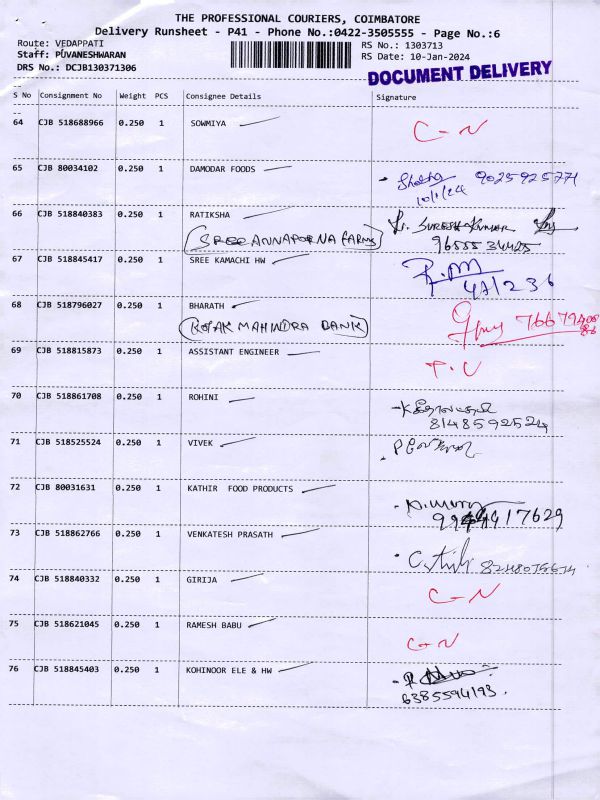 THE PROFESSIONAL COURIERS, COIMBATORE
Delivery Runsheet - P41 - Phone No.:0422-3505555 - Page No.:6
Route: VEDAPPATI
RS No.: 1303713
Staff: PUVANESHWARAN
RS Date: 10-Jan-2024
DRS No.: DCJB130371306
DOCUMENT DELIVERY
S No Consignment No Weight PCS Consignee Details Signature
64 CJB 518688966 0.250 1 SOWMIYA C-N
65 CJB 80034102 0.250 1 DAMODAR FOODS 9025925771
10/1/24
66 CJB 518840383 0.250 1 RATIKSHA SURESH KUMAR
SREE ANNAPORNA FARMS
67 CJB 518845417 0.250 1 SREE KAMACHI HW R.M
471236
68 CJB 518796027 0.250 1 BHARATH
KOTAK MAHINDRA BANK
69 CJB 518815873 0.250 1 ASSISTANT ENGINEER
70 CJB 518861708 0.250 1 ROHINI
8148592524
71 CJB 518525524 0.250 1 VIVEK
72 CJB 80031631 0.250 1 KATHIR FOOD PRODUCTS
73 CJB 518862766 0.250 1 VENKATESH PRASATH
74 CJB 518840332 0.250 1 GIRIJA C-N
75 CJB 518621045 0.250 1 RAMESH BABU C-N
76 CJB 518845403 0.250 1 KOHINOOR ELE & HW
6385594193.